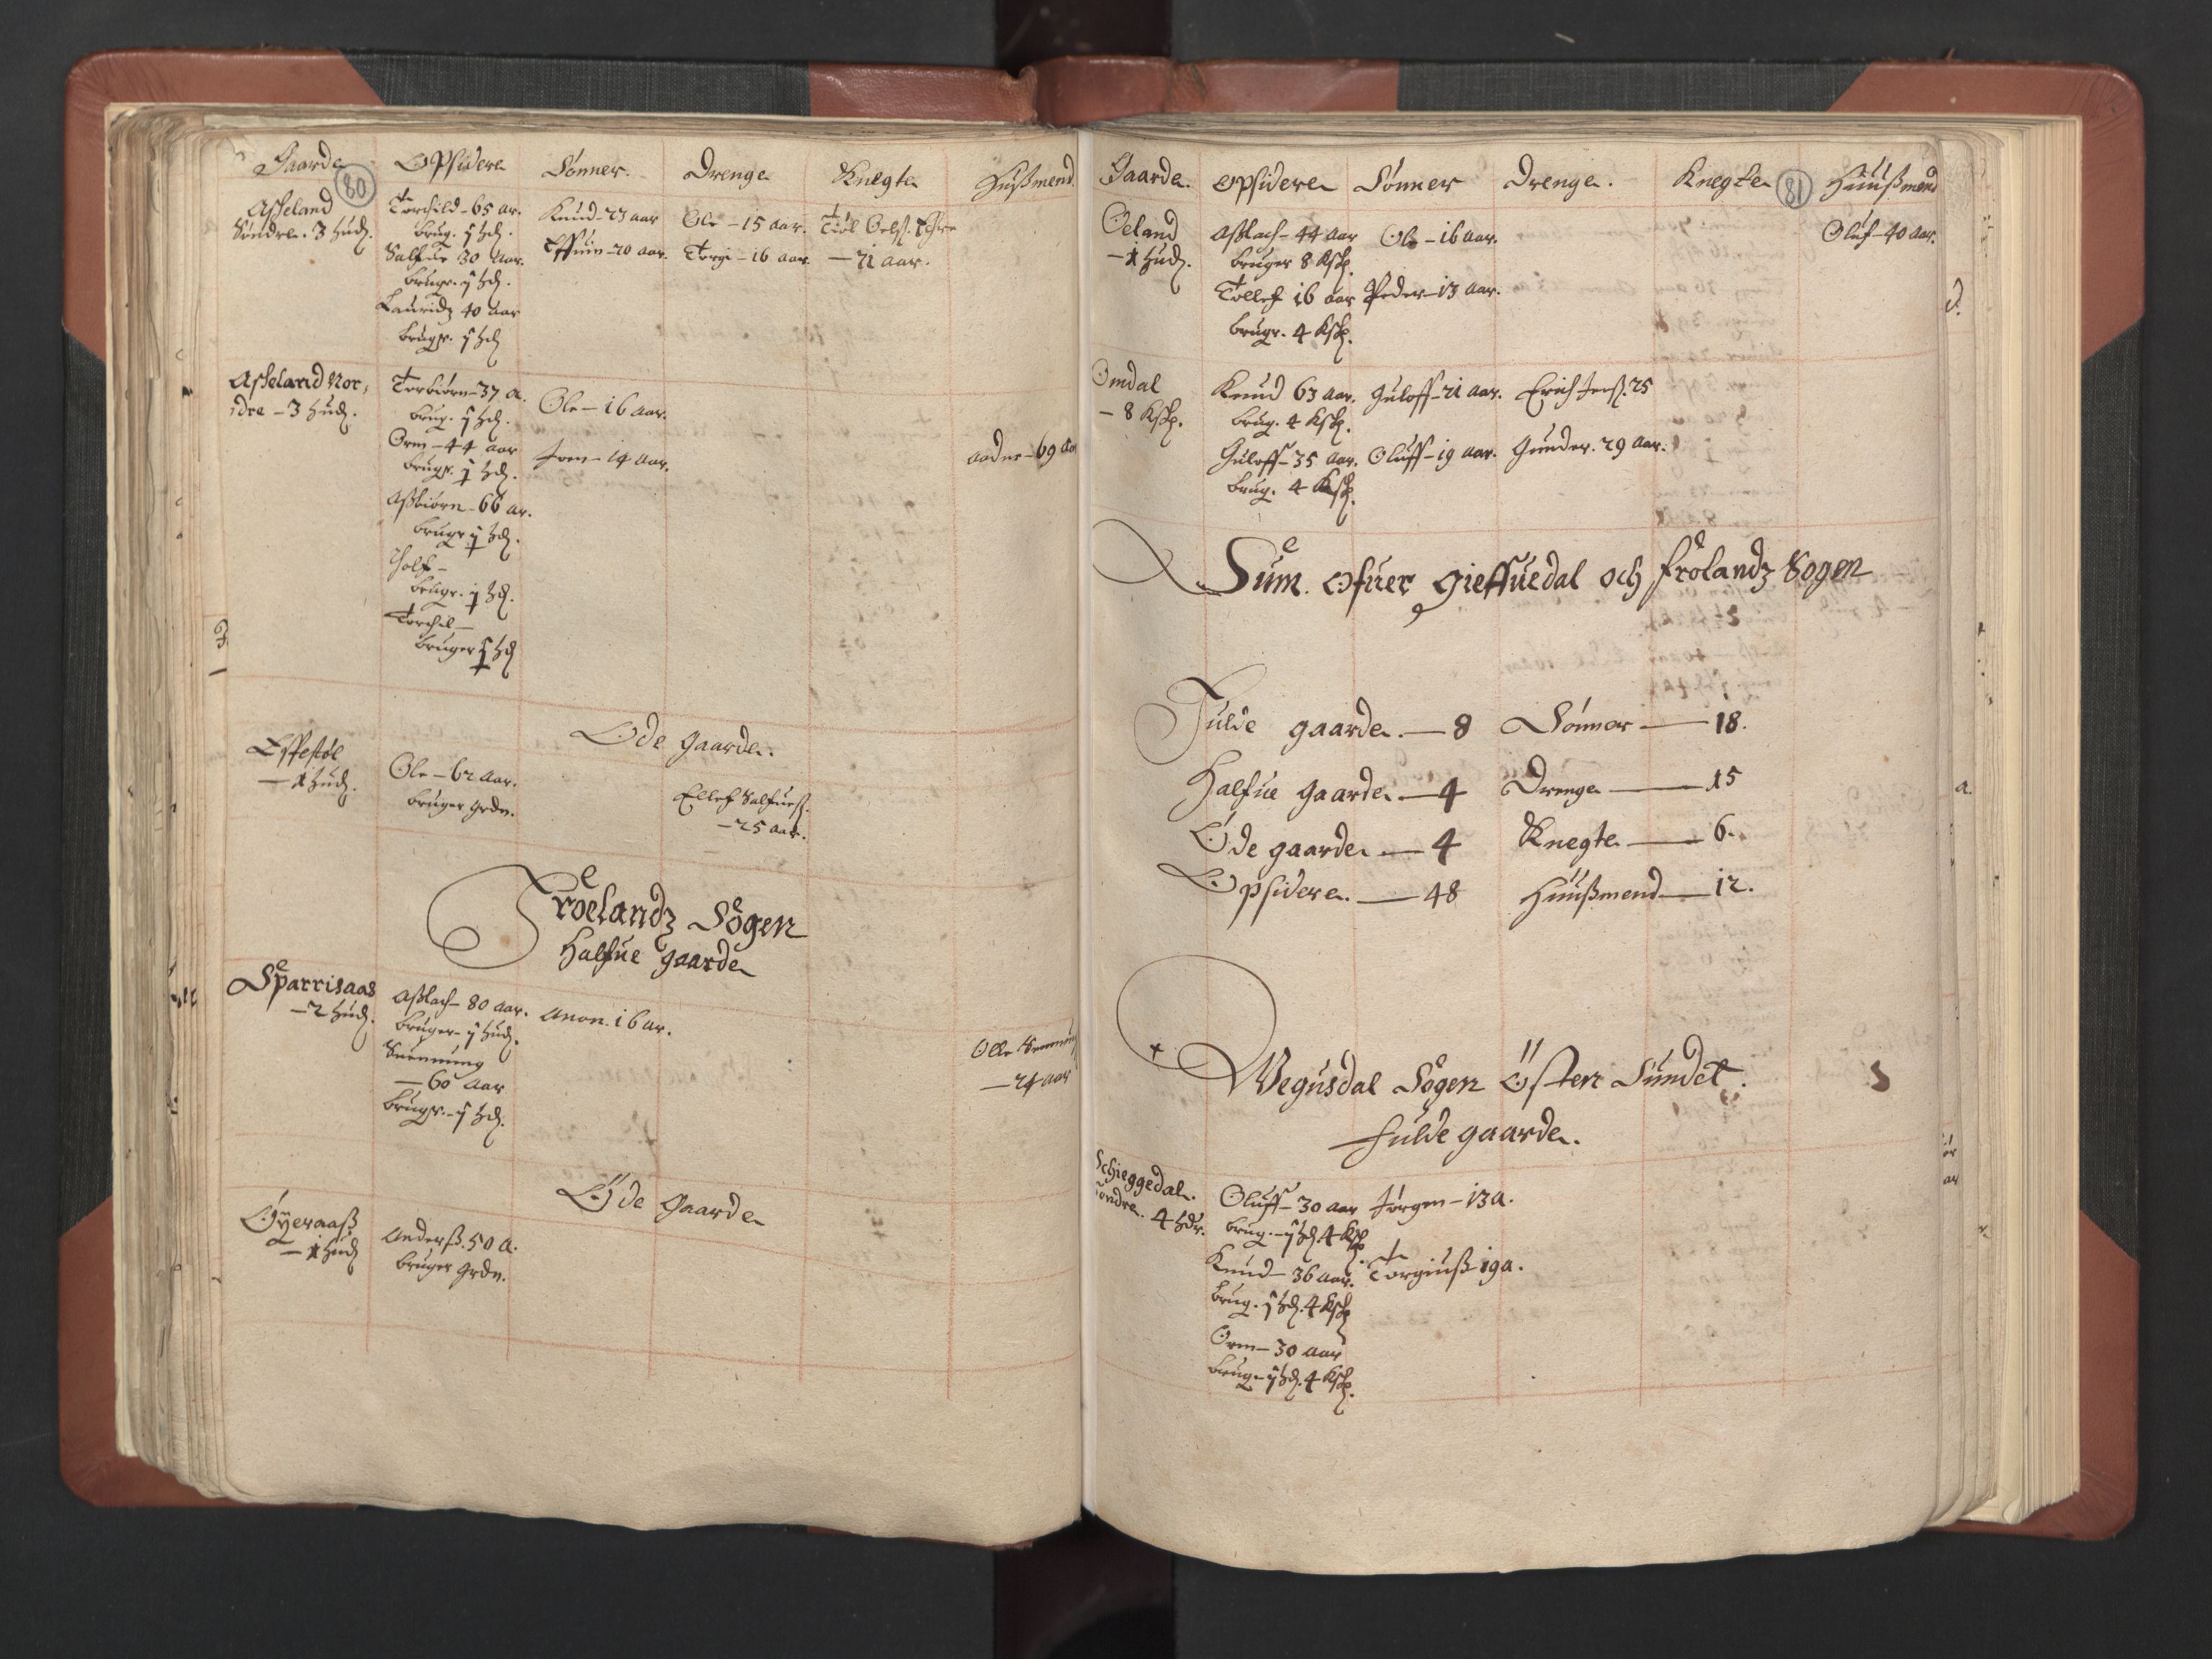 Gaarde Opsidere Sønner. Drenge Knegte Hußmend
80
Aßeland
Søndre. 3 Hud.
Torchild - 65 ar.
brug. j Hd.
Salfue 30 Aar.
brugr. j Hd.
Lauridz 40 Aar
brugr. j Hd
Knud - 23 aar
20 aar.
Ole - 15 aar.
Torgi - 16 aar.
- 21 aar.
Aßeland Nor,
dre - 3 Hud.
Torbiørn - 37 a.
brug. j Hd.
Orm - 44 aar
brugr. j Hd.
Aßbiørn - 66 ar.
brugr j Hd.
Rolf -
brugr. j Hd.
Torchel -
bruger j Hd
Ole - 16 aar.
Joen - 14 aar.
Aadne - 69 aa
Øde gaarde.
- 1 Hud.
Ole - 62 aar.
bruger grdn.
Ellef Salfues.
- 25 aar.
Froelandz Sogen
Halfue gaarde
Sparrisaas
- 2 Hud.
Aßlach - 80 aar.
bruger - j Hud.
Suennung
- 60 aar
brugr. - j Hd.
Anon. 16 ar.
Olle
- 24 aar
Øde Gaarde
Øyeraaß
- 1 Hud
Anderß. 50 a.
bruger grdn.
Gaarde. Opsidere Sønner Drenge. Knegte 81 Huußmend
Oeland
- 1 Hud.
Aßlach - 44 aar
bruger 8 Ksk.
Tollef 16 aar
brugr. 4 Ksk.
Ole - 16 aar.
Peder - 13 aar.
Oluf - 40 aar.
Omdal
- 8 Ksk.
Knud 63 aar.
brug. 4 Ksk.
Guloff - 35 aar.
brug. 4 Ksk.
Guloff - 21 aar.
Oluff - 19 aar.
Erich Jenß. 25
Gunder. 29 aar.
Sum. Ofuer Gieffuedal och Frolandz Sogen
Fulde gaarde. - 8 Sønner - 18.
Halfue gaarde - 4 Drenge - 15
Øde gaarde - 4 Knegte - 6.
Opsidere. - 48 Huußmend - 12.
Wegusdal Sogen Østen Sundet.
Fulde gaarde.
Schieggedal.
Søndre. 4 Hdr.
Oluff - 30 aar
brug. - j Hd 4 Ksk
Knud - 36 aar.
brug. j Hd. 4 Ksk
Orm - 30 aar
brug - j Hd. 4 Ksk.
Jørgen - 13 a.
Torgiuß 19 a.